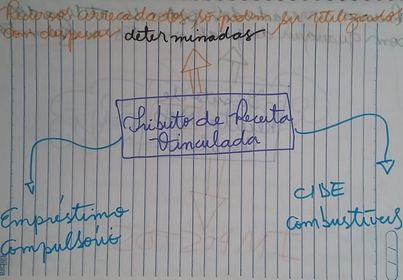 Recursos arrecadados só podem ser utilizados
com despesas determinadas
Tributo de Receita
Vinculada
Empréstimo
Compulsório
CIDE
Combustíveis